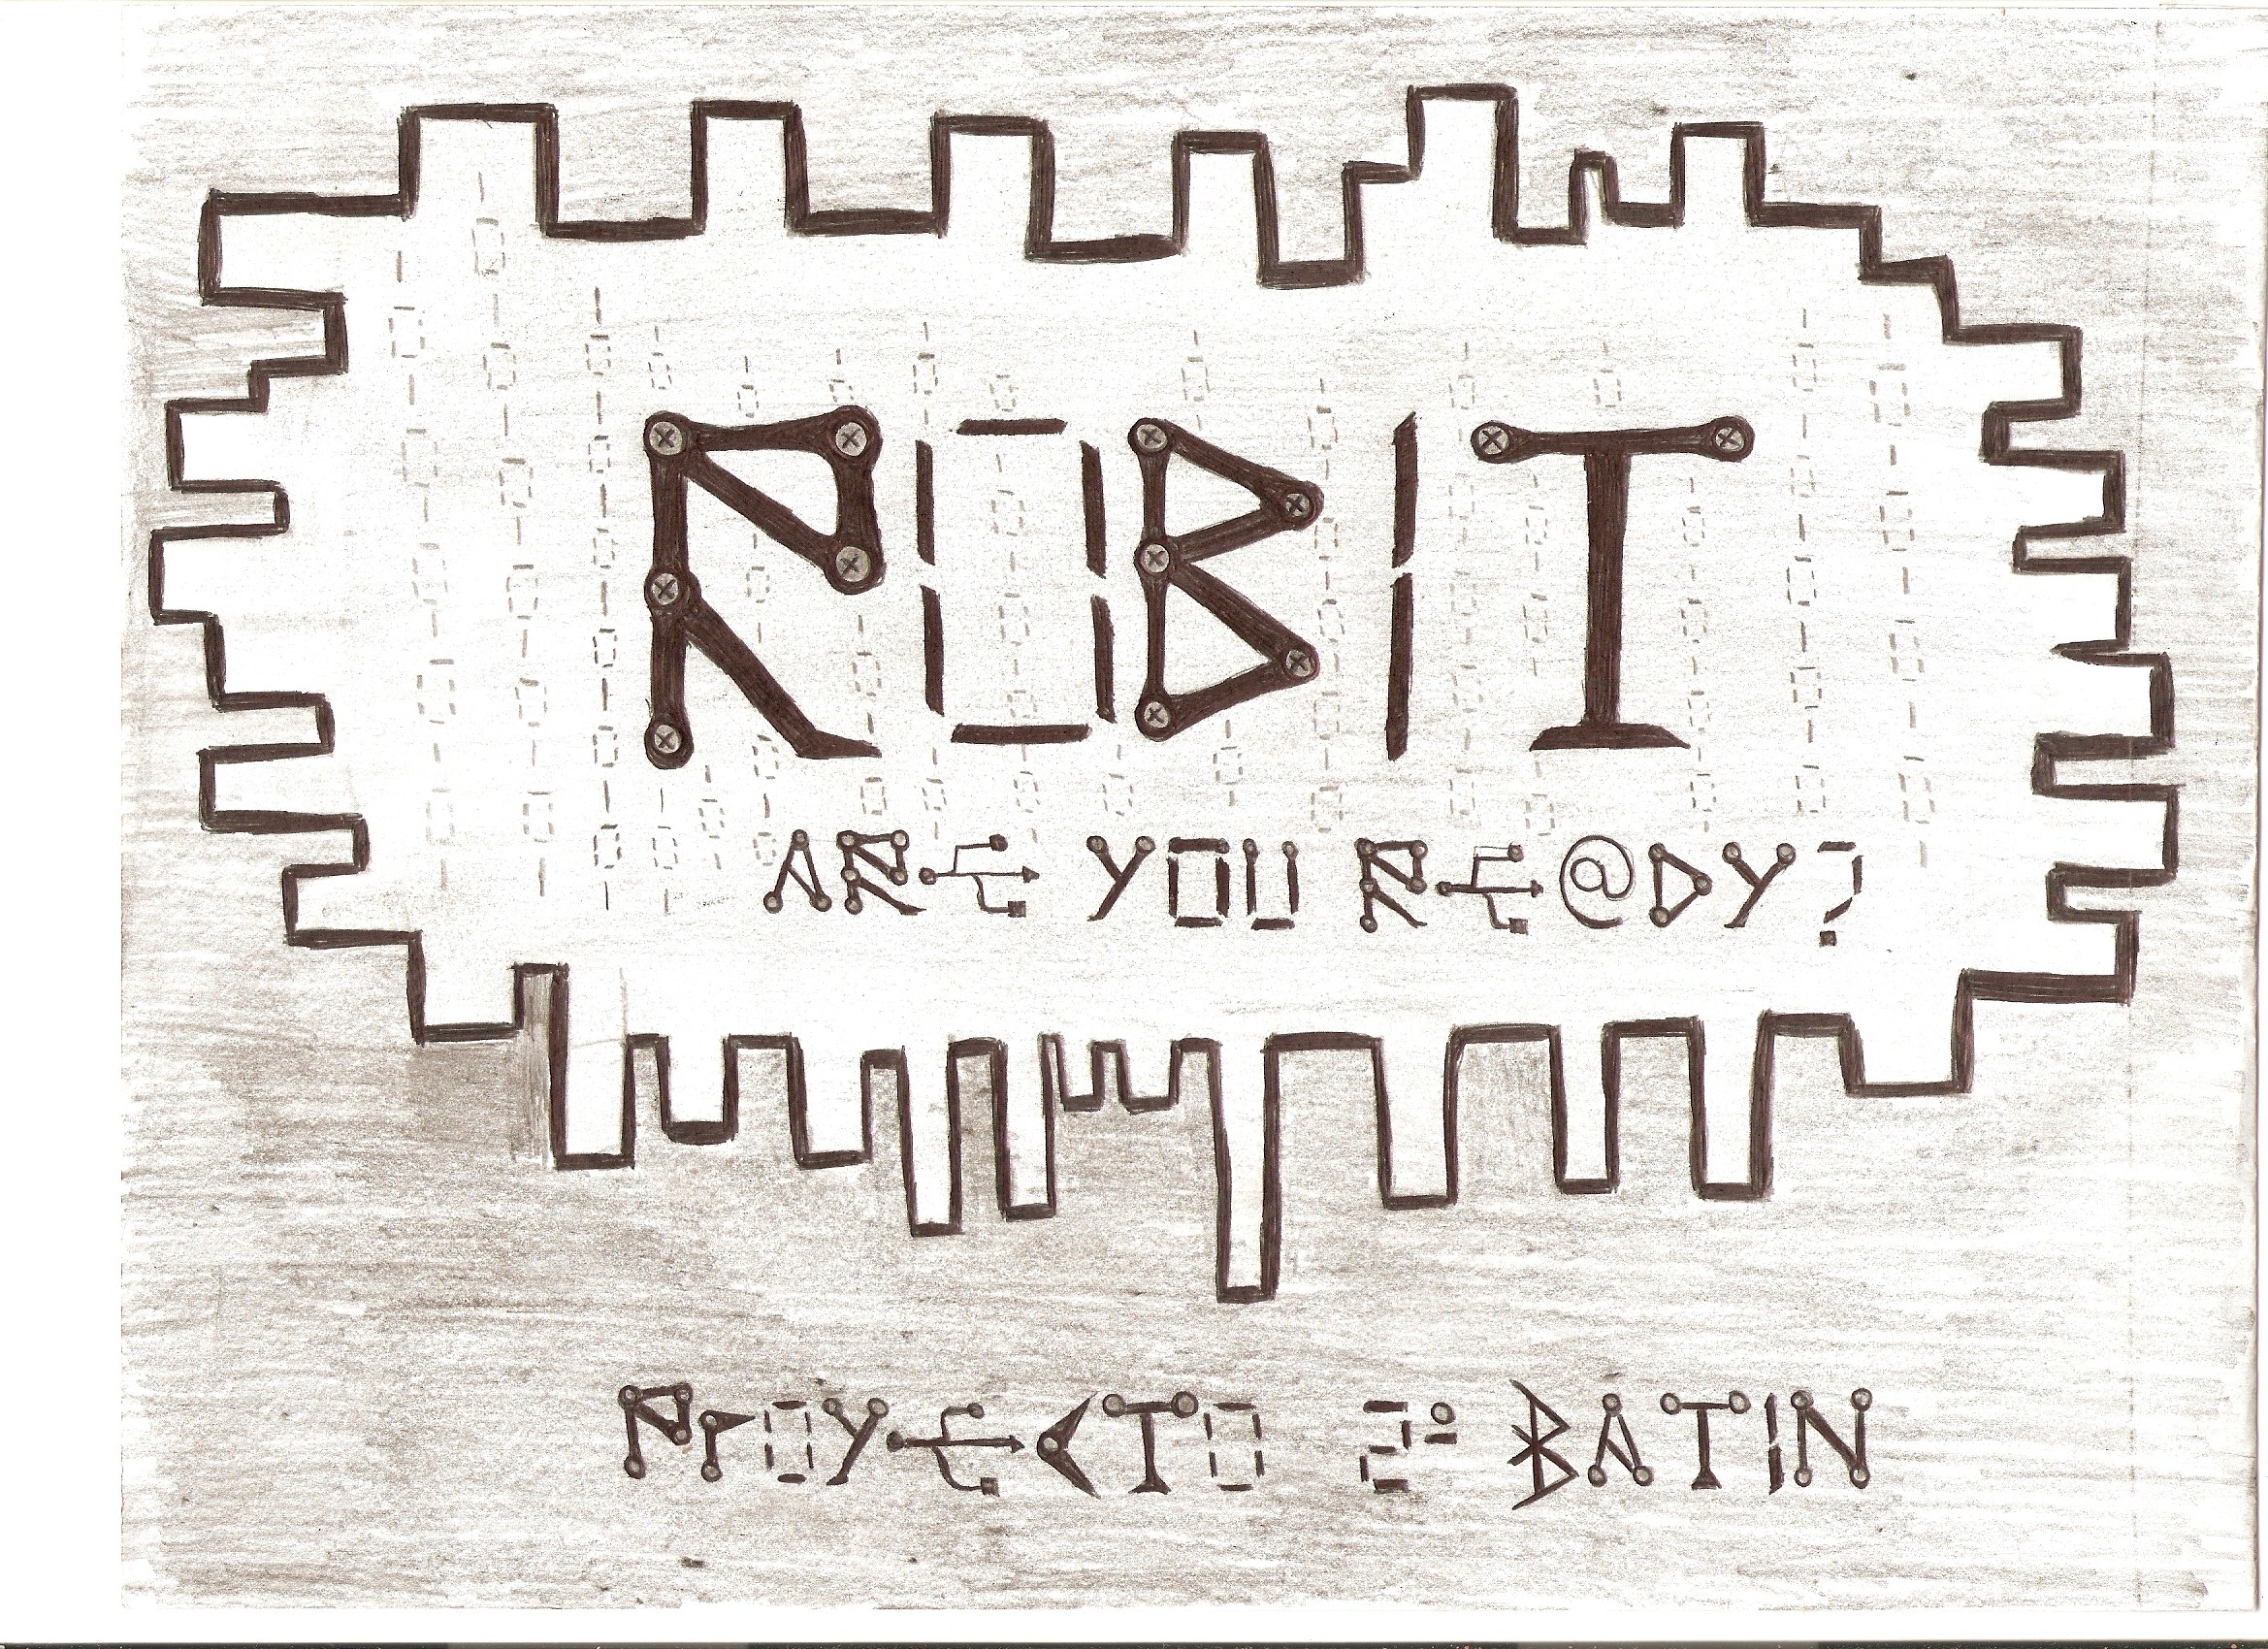 R0BIT
ARE YOU RE@DY?
PrOYECTO 2º BATIN